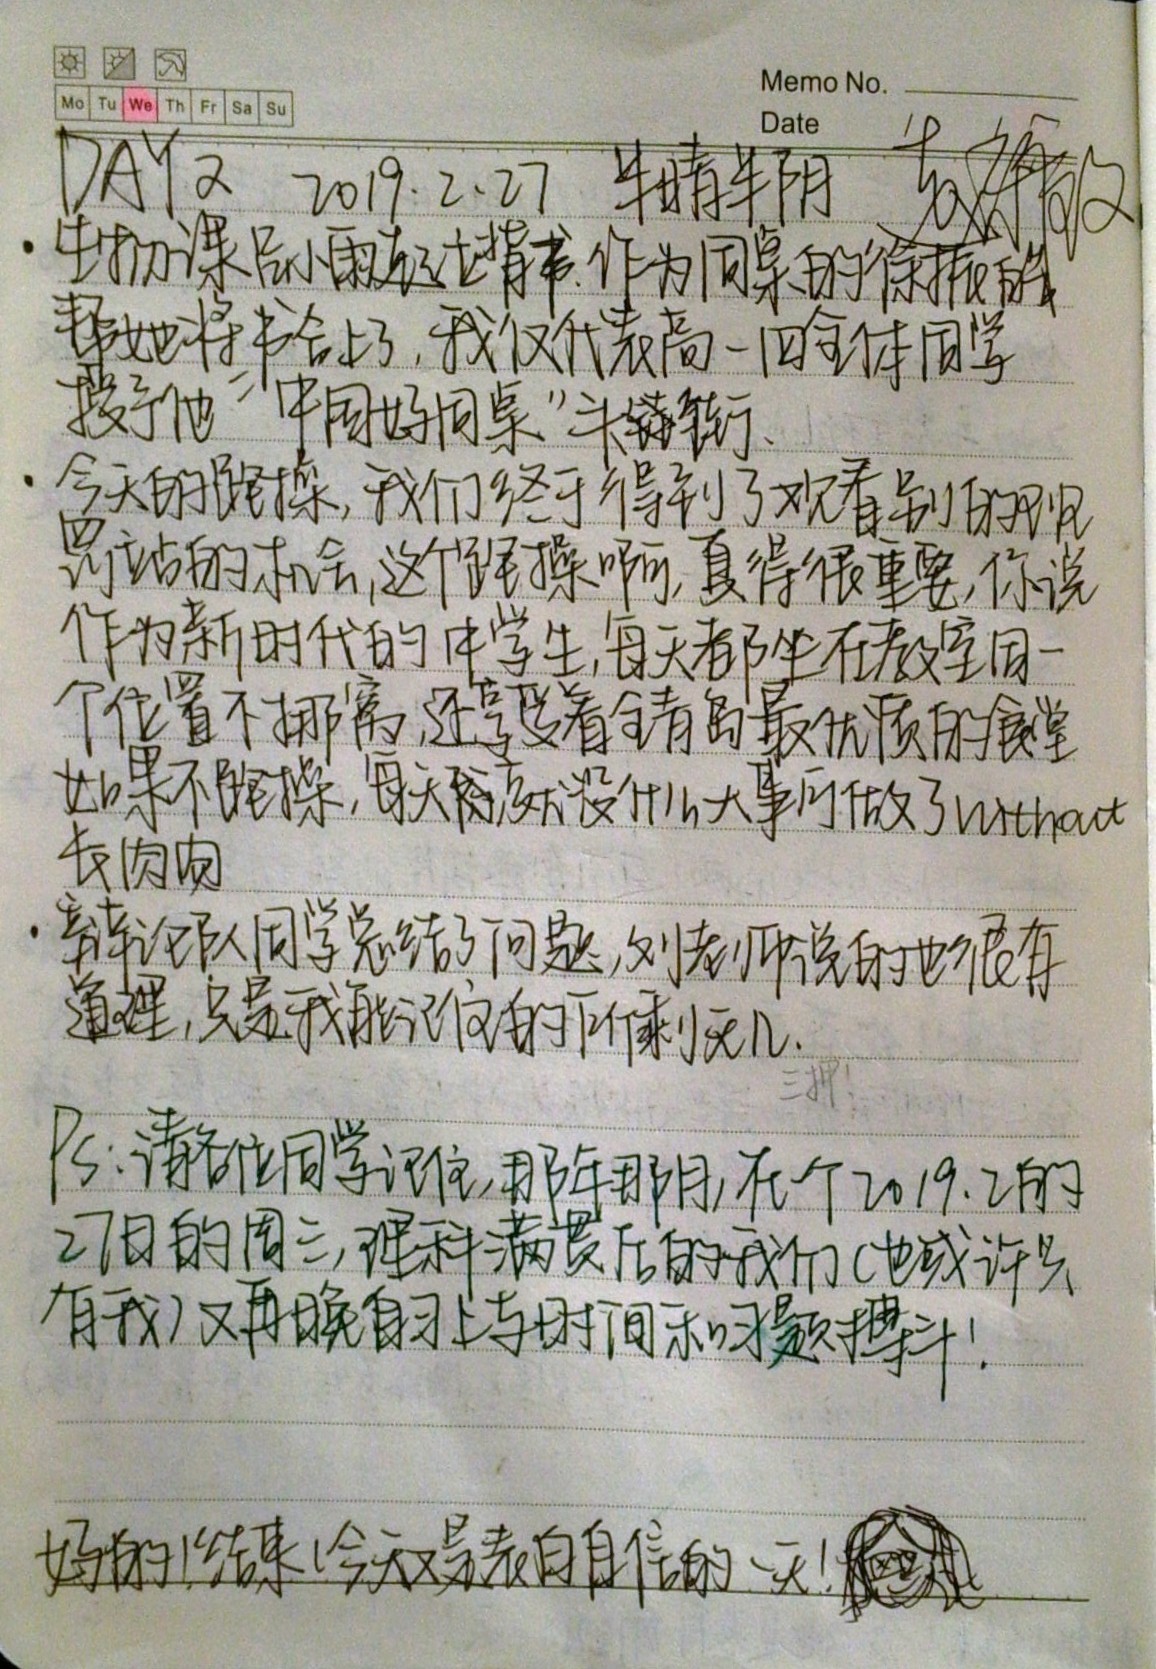 Mo Tu We Th Fr Sa Su
Memo No.
Date
DAY2 2019.2.27 半晴半阴
·生物课后小雨起立背书.作为同桌的徐振的
帮她将书合上了,我仅代表高一四全体同学
授予他“中国好同桌”头衔.
·今天的跑操,我们终于得到了观看别的班
罚站的机会,这个跑操啊,真得很重要,你说
作为新时代的中学生,每天都坐在教室同一
个位置不挪窝,还享受着全青岛最优质的食堂
如果不跑操,每天就没什么大事可做了without
长肉肉
·辩论队同学总结了问题,刘老师说的也很有
道理,只是我能记住的所剩无几.
三押!
Ps:请各位同学记住,那年那月,在一个2019.2的
27日的周三,理科满贯后的我们(也或许只
有我)又再晚自习上与时间和习题搏斗!
好的!结束!今天又是表白自信的一天!